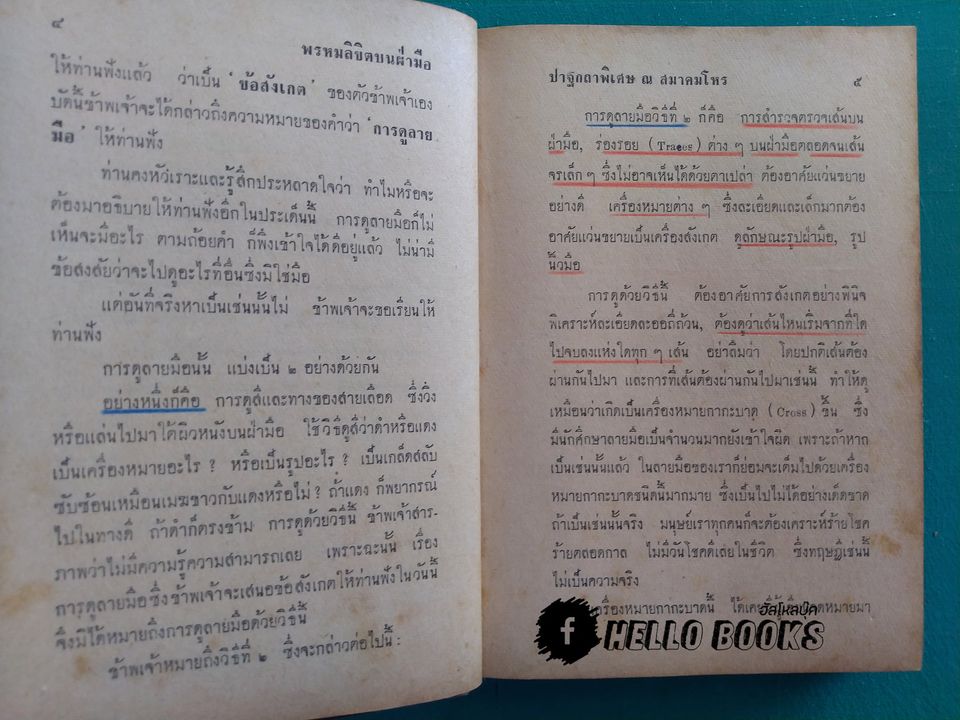 ๔
พรหมลิขิตบนฝ่ามือ
ให้ท่านฟังแล้ว ว่าเป็น ‘ข้อสังเกต’ ของตัวข้าพเจ้าเอง
บัดนี้ข้าพเจ้าจะได้กล่าวถึงความหมายของคำว่า ‘การดูลาย
มือ’ ให้ท่านฟัง
ท่านคงหัวเราะและรู้สึกประหลาดใจว่า ทำไมหรือจะ
ต้องมาอธิบายให้ท่านฟังอีกในประเด็นนี้ การดูลายมือก็ไม่
เห็นจะมีอะไร ตามถ้อยคำ ก็พึงเข้าใจได้ดีอยู่แล้ว ไม่น่ามี
ข้อสงสัยว่าจะไปดูอะไรที่อื่นซึ่งมิใช่มือ
แต่อันที่จริงหาเป็นเช่นนั้นไม่ ข้าพเจ้าจะขอเรียนให้
ท่านฟัง
การดูลายมือนั้น แบ่งเป็น ๒ อย่างด้วยกัน
อย่างหนึ่งก็คือ การดูสีและทางของสายเลือด ซึ่งวิ่ง
หรือแล่นไปมาใต้ผิวหนังบนฝ่ามือ ใช้วิธีดูสีว่าดำหรือแดง
เป็นเครื่องหมายอะไร ? หรือเป็นรูปอะไร ? เป็นเกล็ดสลับ
ซับซ้อนเหมือนเมฆขาวกับแดงหรือไม่ ? ถ้าแดง ก็พยากรณ์
ไปในทางดี ถ้าดำก็ตรงข้าม การดูด้วยวิธีนี้ ข้าพเจ้าสาร-
ภาพว่าไม่มีความรู้ความสามารถเลย เพราะฉะนั้น เรื่อง
การดูลายมือซึ่งข้าพเจ้าจะเสนอข้อสังเกตให้ท่านฟังในวันนี้
จึงมิได้หมายถึงการดูลายมือด้วยวิธีนี้
ข้าพเจ้าหมายถึงวิธีที่ ๒ ซึ่งจะกล่าวต่อไปนี้ :
ปาฐกถาพิเศษ ณ สมาคมโหร ๕
การดูลายมือวิธีที่ ๒ ก็คือ การสำรวจตรวจเส้นบน
ฝ่ามือ, ร่องรอย (Traces) ต่าง ๆ บนฝ่ามือตลอดจนเส้น
จรเล็ก ๆ ซึ่งไม่อาจเห็นได้ด้วยตาเปล่า ต้องอาศัยแว่นขยาย
อย่างดี เครื่องหมายต่าง ๆ ซึ่งละเอียดและเล็กมากต้อง
อาศัยแว่นขยายเป็นเครื่องสังเกต ดูลักษณะรูปฝ่ามือ, รูป
นิ้วมือ
การดูด้วยวิธีนี้ ต้องอาศัยการสังเกตอย่างพินิจ
พิเคราะห์ละเอียดละออถี่ถ้วน, ต้องดูว่าเส้นไหนเริ่มจากที่ใด
ไปจบลงแห่งใดทุก ๆ เส้น อย่าลืมว่า โดยปกติเส้นต้อง
ผ่านกันไปมา และการที่เส้นต้องผ่านกันไปมาเช่นนี้ ทำให้ดู
เหมือนว่าเกิดเป็นเครื่องหมายกากะบาด (Cross) ขึ้น ซึ่ง
มีนักศึกษาลายมือเป็นจำนวนมากยังเข้าใจผิด เพราะถ้าหาก
เป็นเช่นนั้นแล้ว ในลายมือของเราก็ย่อมจะเต็มไปด้วยเครื่อง
หมายกากะบาดชนิดนี้มากมาย ซึ่งเป็นไปไม่ได้อย่างเด็ดขาด
ถ้าเป็นเช่นนั้นจริง มนุษย์เราทุกคนก็จะต้องเคราะห์ร้ายโชค
ร้ายตลอดกาล ไม่มีวันโชคดีเลยในชีวิต ซึ่งทฤษฎีเช่นนี้
ไม่เป็นความจริง
เครื่องหมายกากะบาดนี้ ได้เคยมีผู้
ฮัลโหลบุ๊ค
f HELLO BOOKS